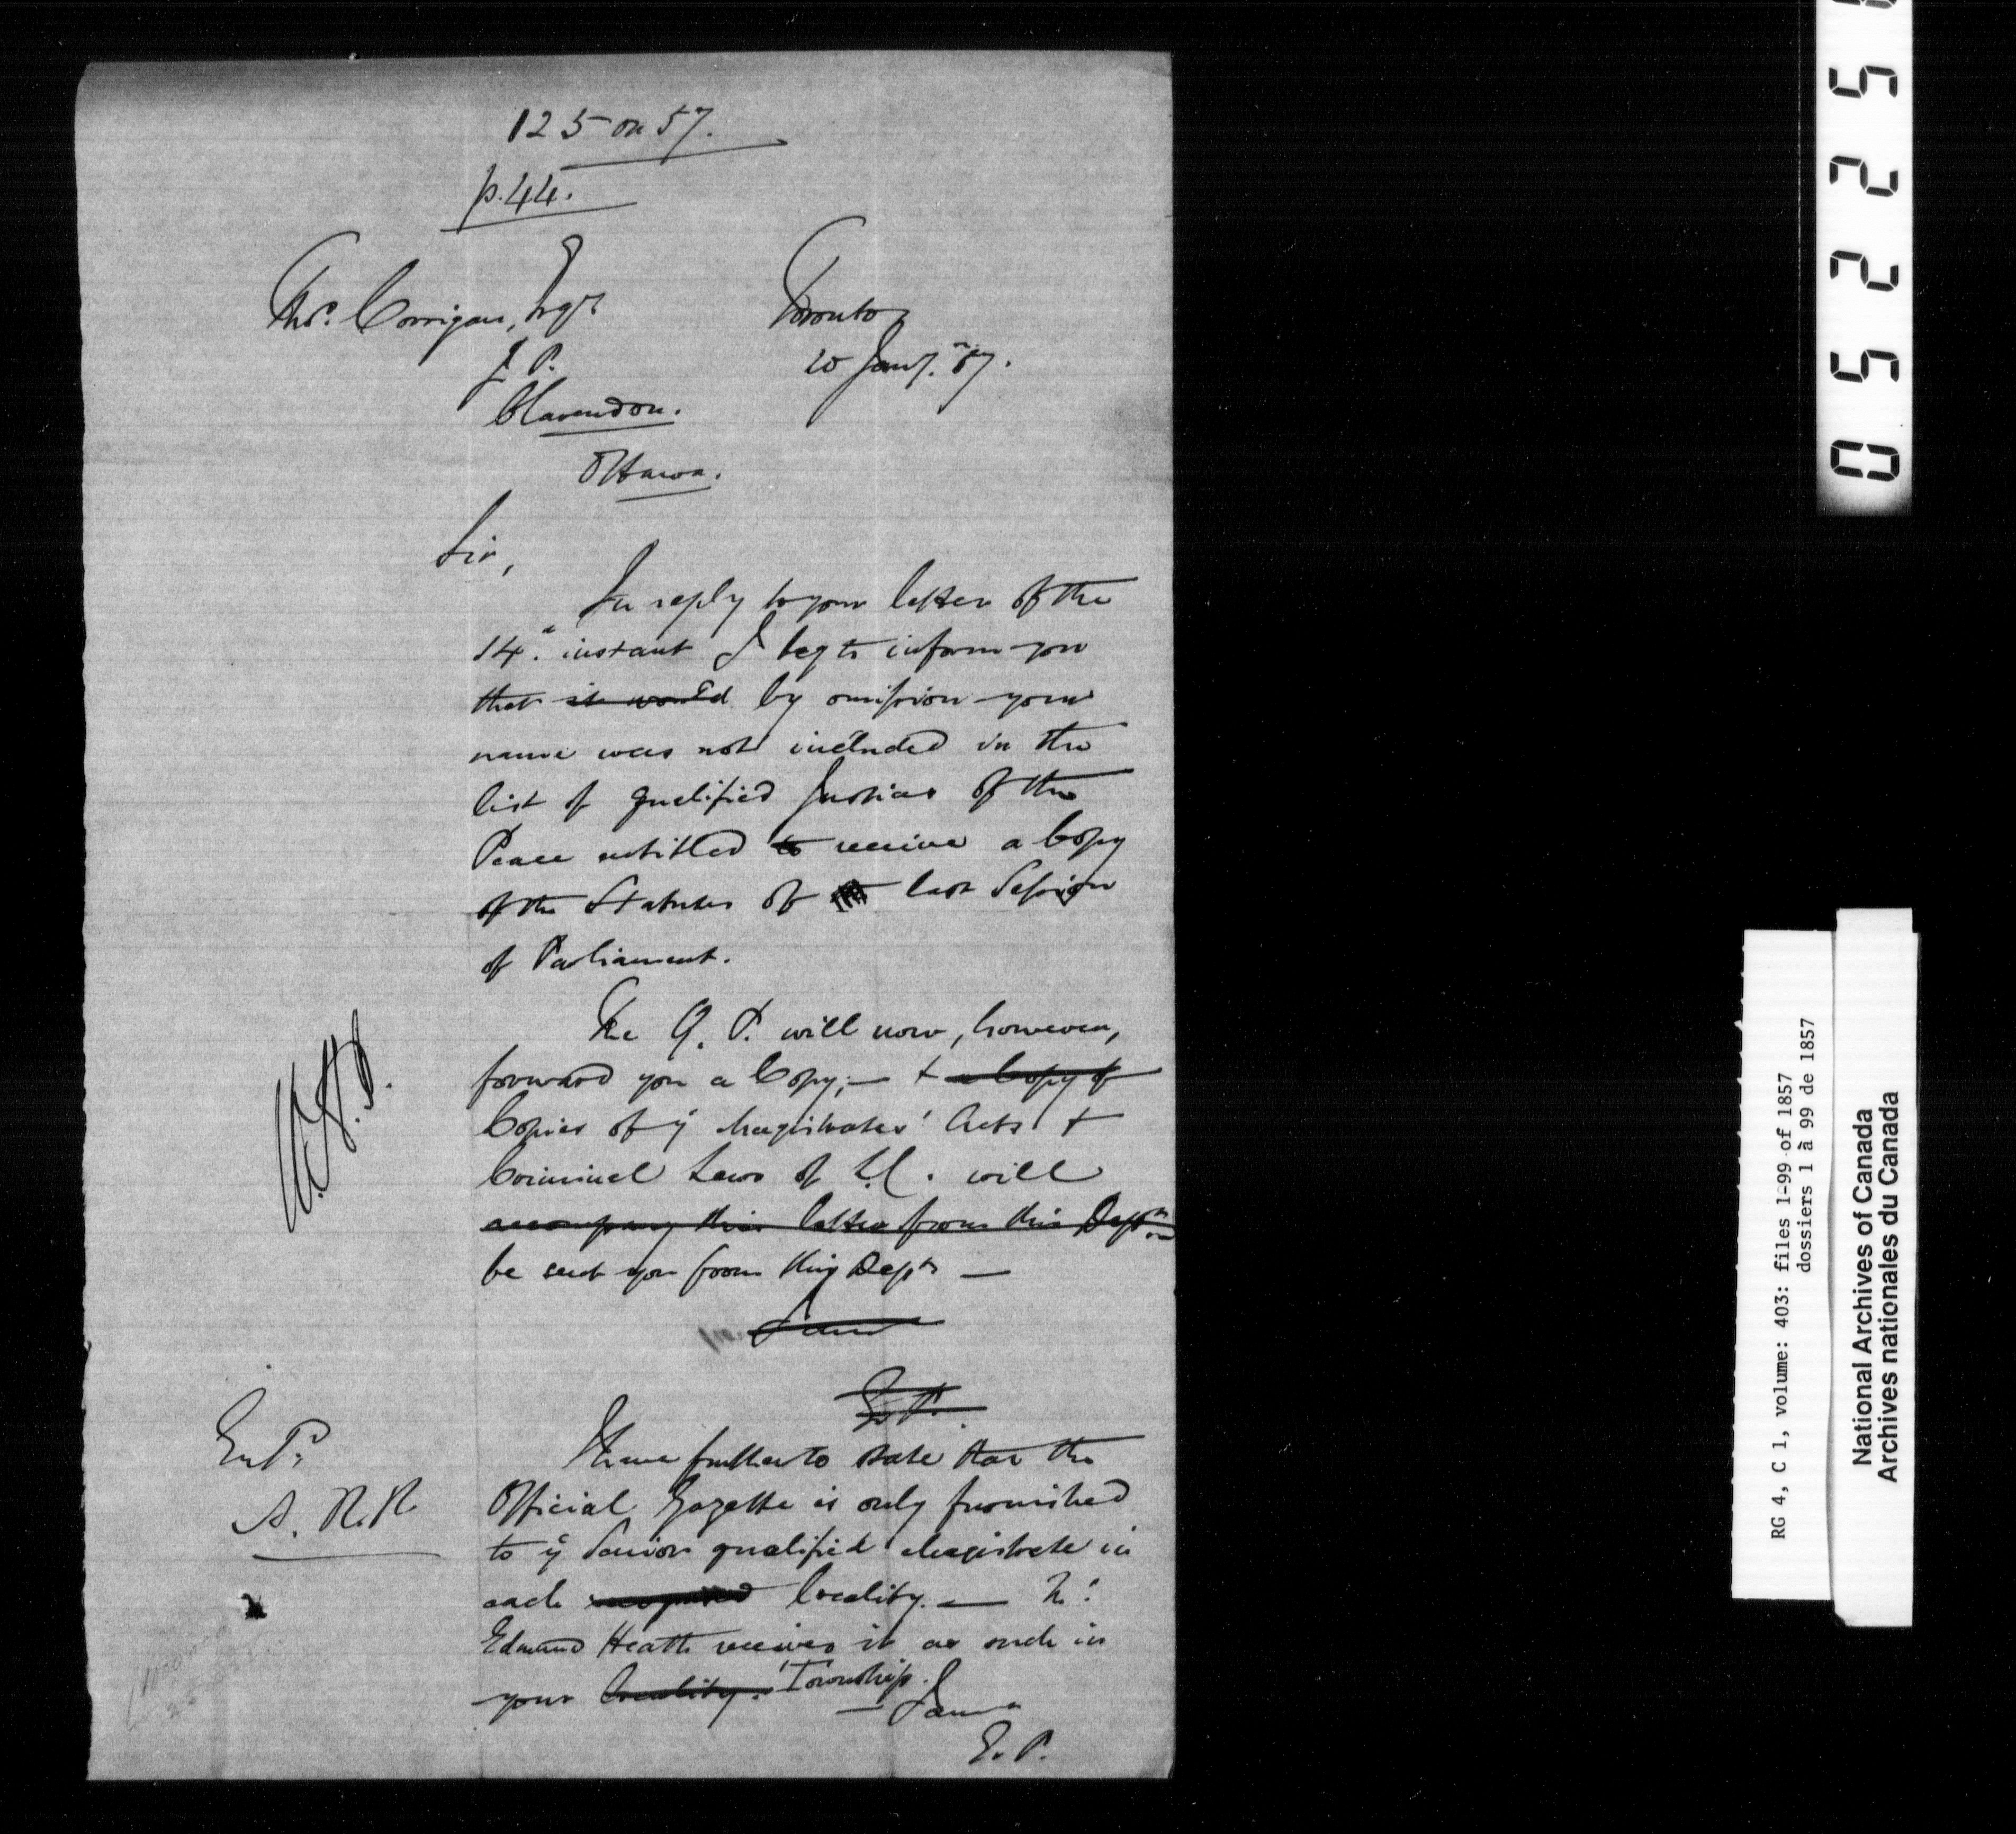 125 on 57.
p. 44.
Thos. Corrigan, Esqr
J. P.
Clarendon.
Ottawa.
Toronto
20 Jany. 57.
Sir,
In reply to your letter of the
14th instant I beg to inform you
that it would by omission your
name was not included in the
list of qualified Justices of the
Peace entitled to receive a Copy
of the Statutes of last Session
of Parliament.
The Q. P. will now, however,
forward you a Copy; — + a Copy of
Copies of ye Magistrates' Acts +
Criminal Laws of L.C. will
accompany this letter from this Dept
be sent you from this Dept —
I have further to state that the
Official Gazette is only furnished
to ye Senior qualified Magistrate in
each locality. — Mr
Edmund Heath receives it as such in
your locality. Township.
E. P.
Entd
A. R. R
05225
RG 4, C 1, volume: 403: files 1-99 of 1857
dossiers 1 à 99 de 1857
National Archives of Canada
Archives nationales du Canada